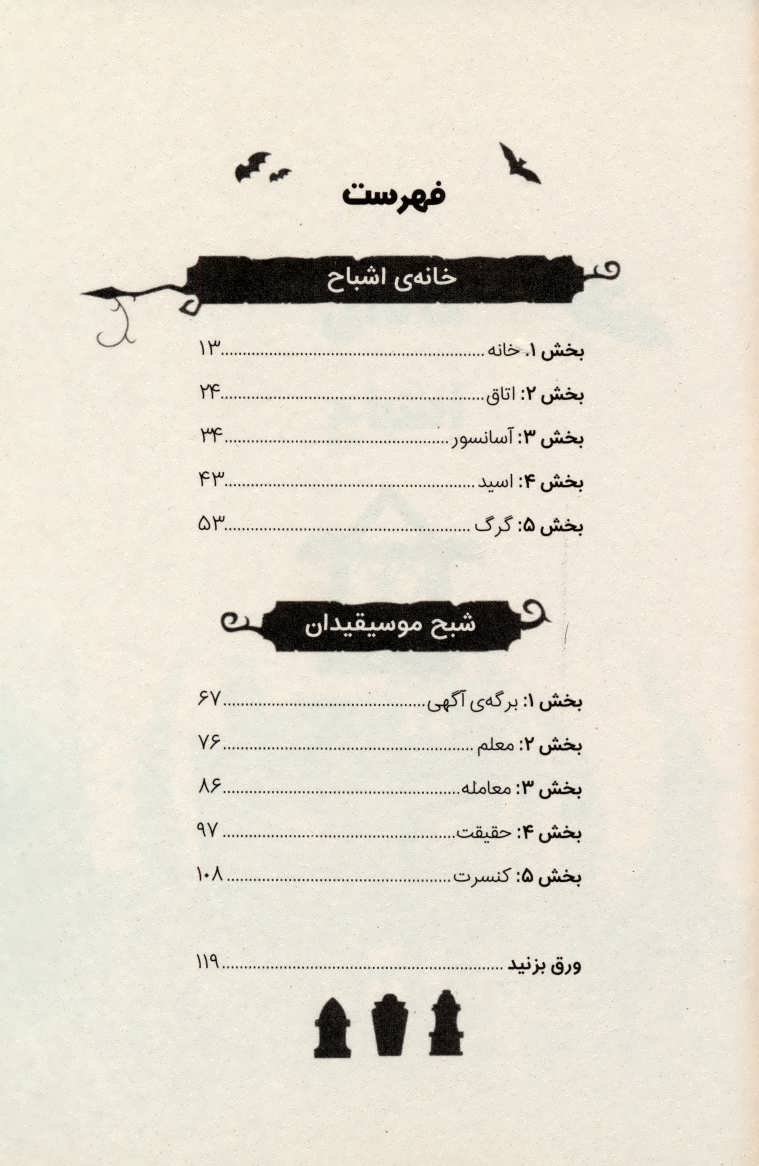 فهرست
خانه‌ی اشباح
بخش ۱. خانه ........ ۱۳
بخش ۲: اتاق ........ ۲۴
بخش ۳: آسانسور ........ ۳۴
بخش ۴: اسید ........ ۴۳
بخش ۵: گرگ ........ ۵۳
شبح موسیقیدان
بخش ۱: برگه‌ی آگهی ........ ۶۷
بخش ۲: معلم ........ ۷۶
بخش ۳: معامله ........ ۸۶
بخش ۴: حقیقت ........ ۹۷
بخش ۵: کنسرت ........ ۱۰۸
ورق بزنید ........ ۱۱۹